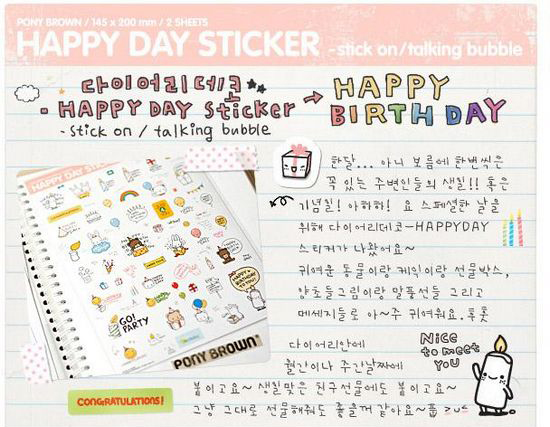 PONY BROWN / 145 x 200 mm / 2 SHEETS
HAPPY DAY STICKER - stick on / talking bubble
다이어리데코
- HAPPY DAY Sticker → HAPPY BIRTHDAY
- Stick on / talking bubble
한달... 아니 보름에 한번씩은
꼭 있는 주변인들의 생일!! 혹은
기념일! 아하하! 요 스페셜한 날을
위해 다이어리데코-HAPPYDAY
스티커가 나왔어요~
귀여운 동물이랑 케익이랑 선물박스,
양초들그림이랑 말풍선들 그리고
메세지들로 아~주 귀여워요.후훗
다이어리안에
월간이나 주간날짜에
붙이고요~ 생일맞은 친구선물에도 붙이고요~
그냥 그대로 선물해줘도 좋을꺼 같아요~흡 >u<
Nice
to meet
YOU
HAPPY DAY STICKER
GO!
PARTY
HAPPY
BIRTHDAY
TO YOU!
PONY BROWN
CONGRATULATIONS!